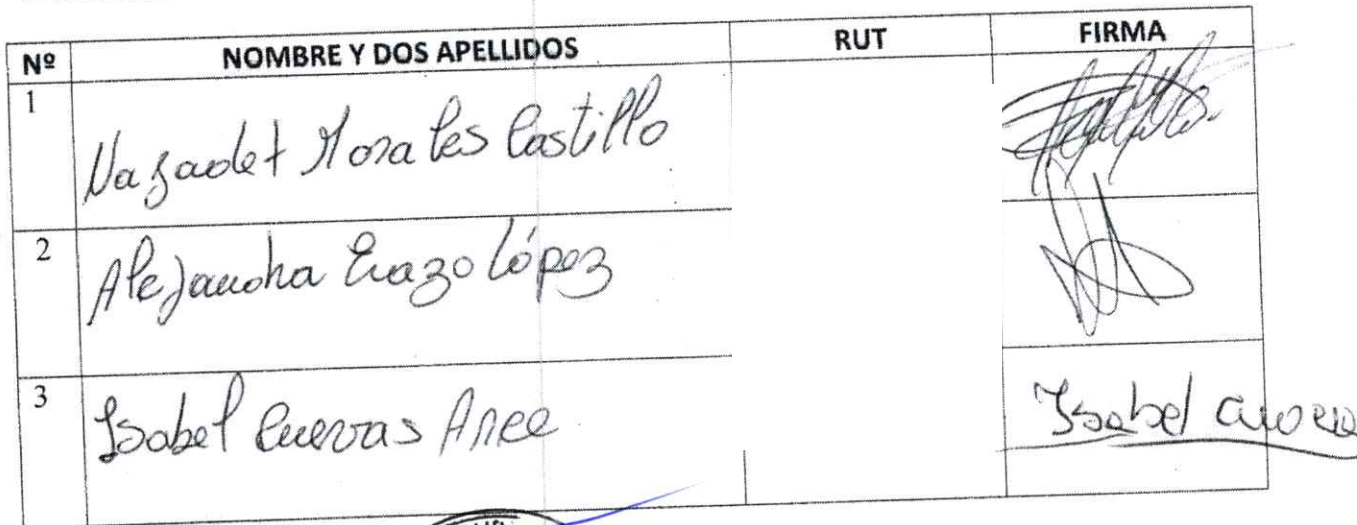 Nº NOMBRE Y DOS APELLIDOS RUT FIRMA
1 Morales Castillo
2 Alejandra Erazo López
3 Isabel Cuevas Arce Isabel Cuevas